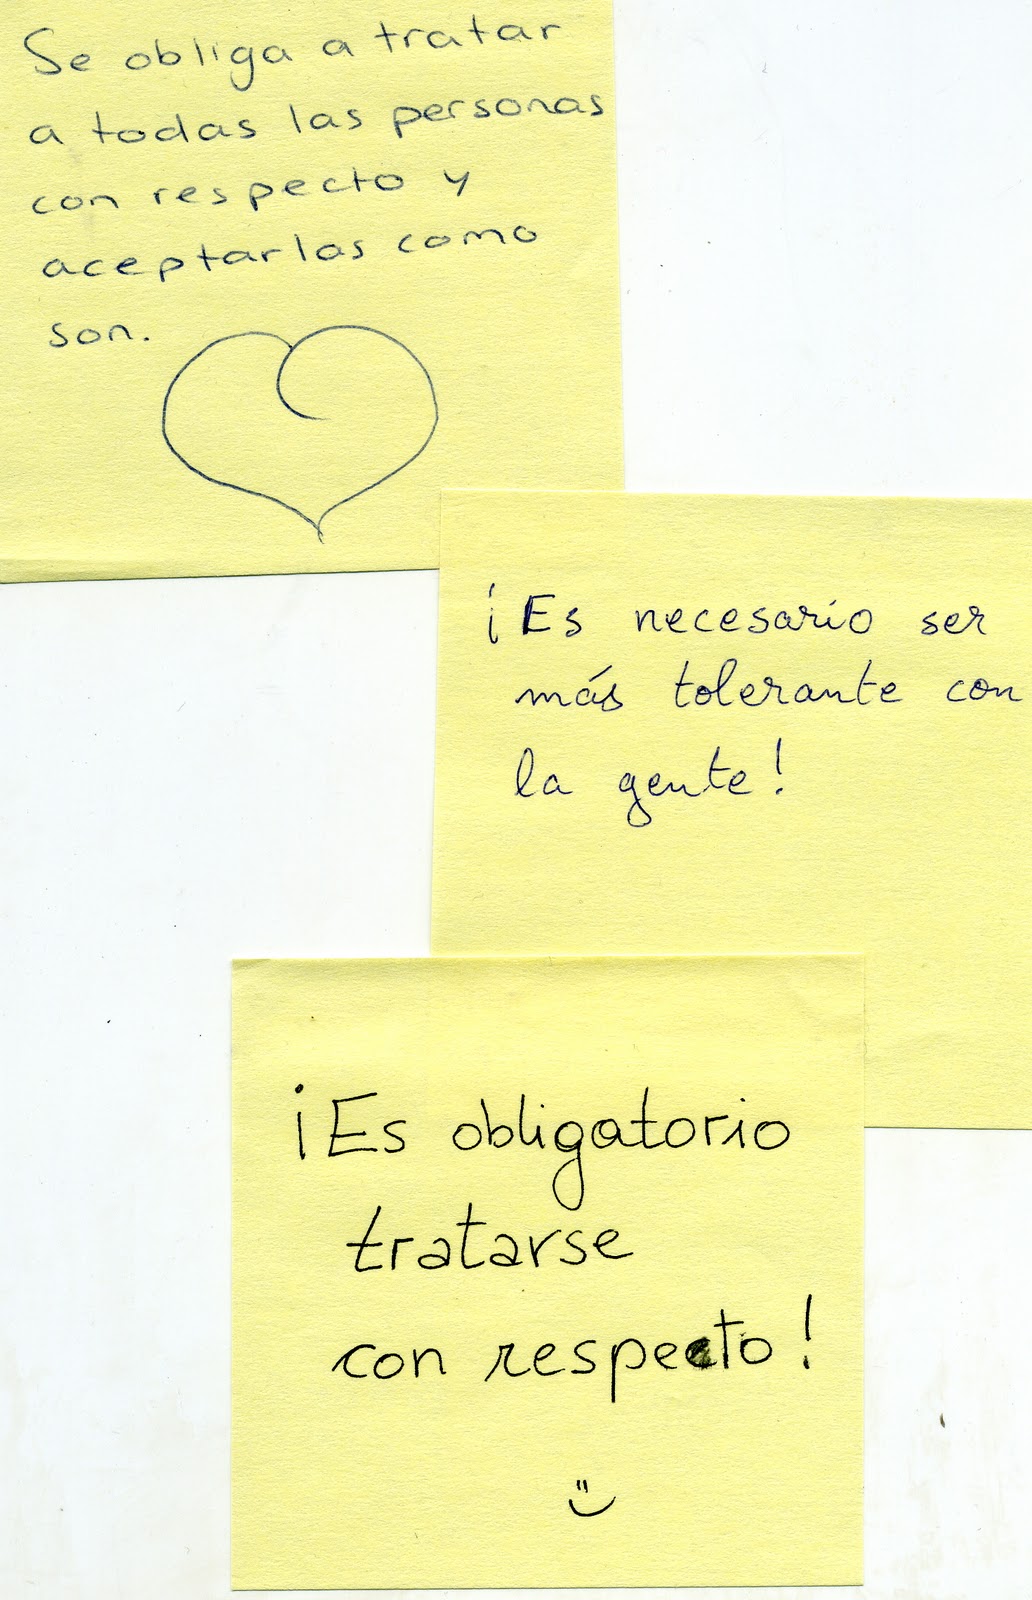 Se obliga a tratar
a todas las personas
con respecto y
aceptarlas como
son.
¡Es necesario ser
más tolerante con
la gente!
¡Es obligatorio
tratarse
con respecto!